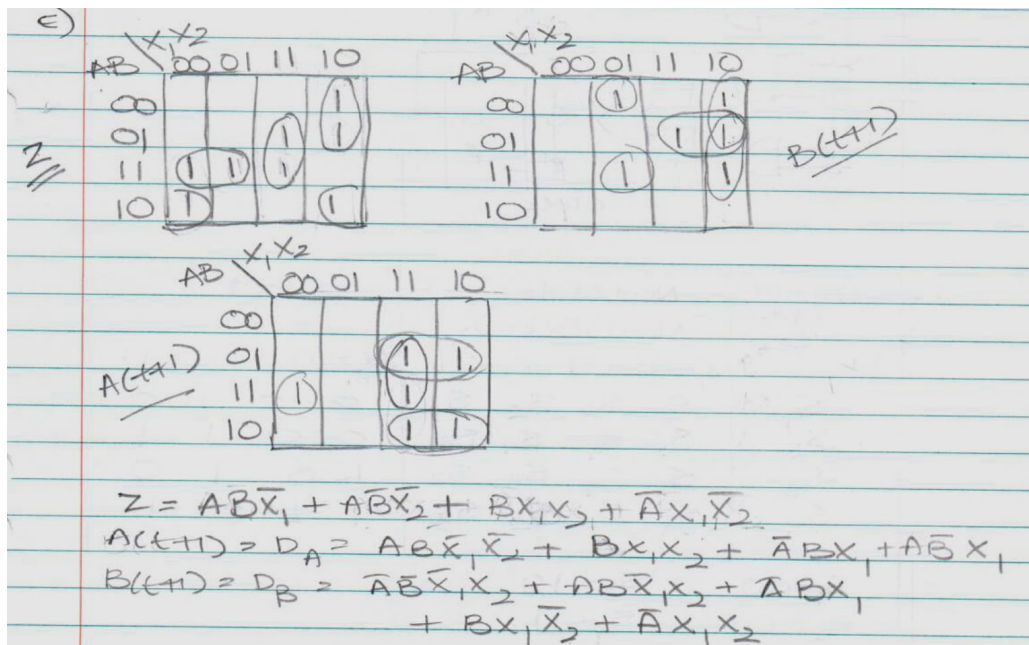 E)
X₁X₂
AB 00 01 11 10
00 1
01 1 1
11 1 1 1
10 1 1
Z
X₁X₂
AB 00 01 11 10
00 1 1
01 1 1
11 1 1
10
B(t+1)
X₁X₂
AB 00 01 11 10
00
01 1 1
11 1 1
10 1 1
A(t+1)
Z = ABX̄₁ + AB̄X̄₂ + BX₁X₂ + ĀX₁X̄₂
A(t+1) = D_A = ABX̄₁X̄₂ + BX₁X₂ + ĀBX₁ + AB̄X₁
B(t+1) = D_B = ĀB̄X̄₁X₂ + ABX̄₁X₂ + ĀBX₁
+ BX₁X̄₂ + ĀX₁X₂